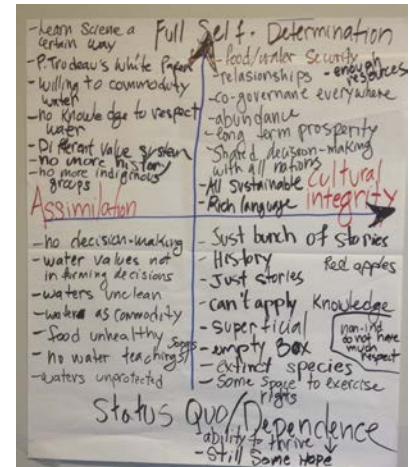 Full Self-Determination
- Learn Sciene a
certain way
- P. Trudeau's White Paper
- willing to commoduty
water
- no knowledge to respect
water
- Different value system
- no more history
- no more indiginous
groups
Assimilation
- food/water security
- relasionships - enough
resources
- co-governane everywhere
- abundance
- long term prosperity
- Shared decision-making
with all nations
- All sustainable
- Rich language
Cultural
integrity
- no decision-making
- water values not
informing decisions
- waters unclean
- water as commodity
- food unhealthy
- no water teachings
- waters unprotected
- Just bunch of stories
- History
Red apples
- Just stories
- can't apply knowledge
- superficial
- empty box
- extinct species
- Some space to exercise
rights
non-ind
do not have
much
respect
Status Quo/Dependence
- ability to thrive
- Still Some Hope